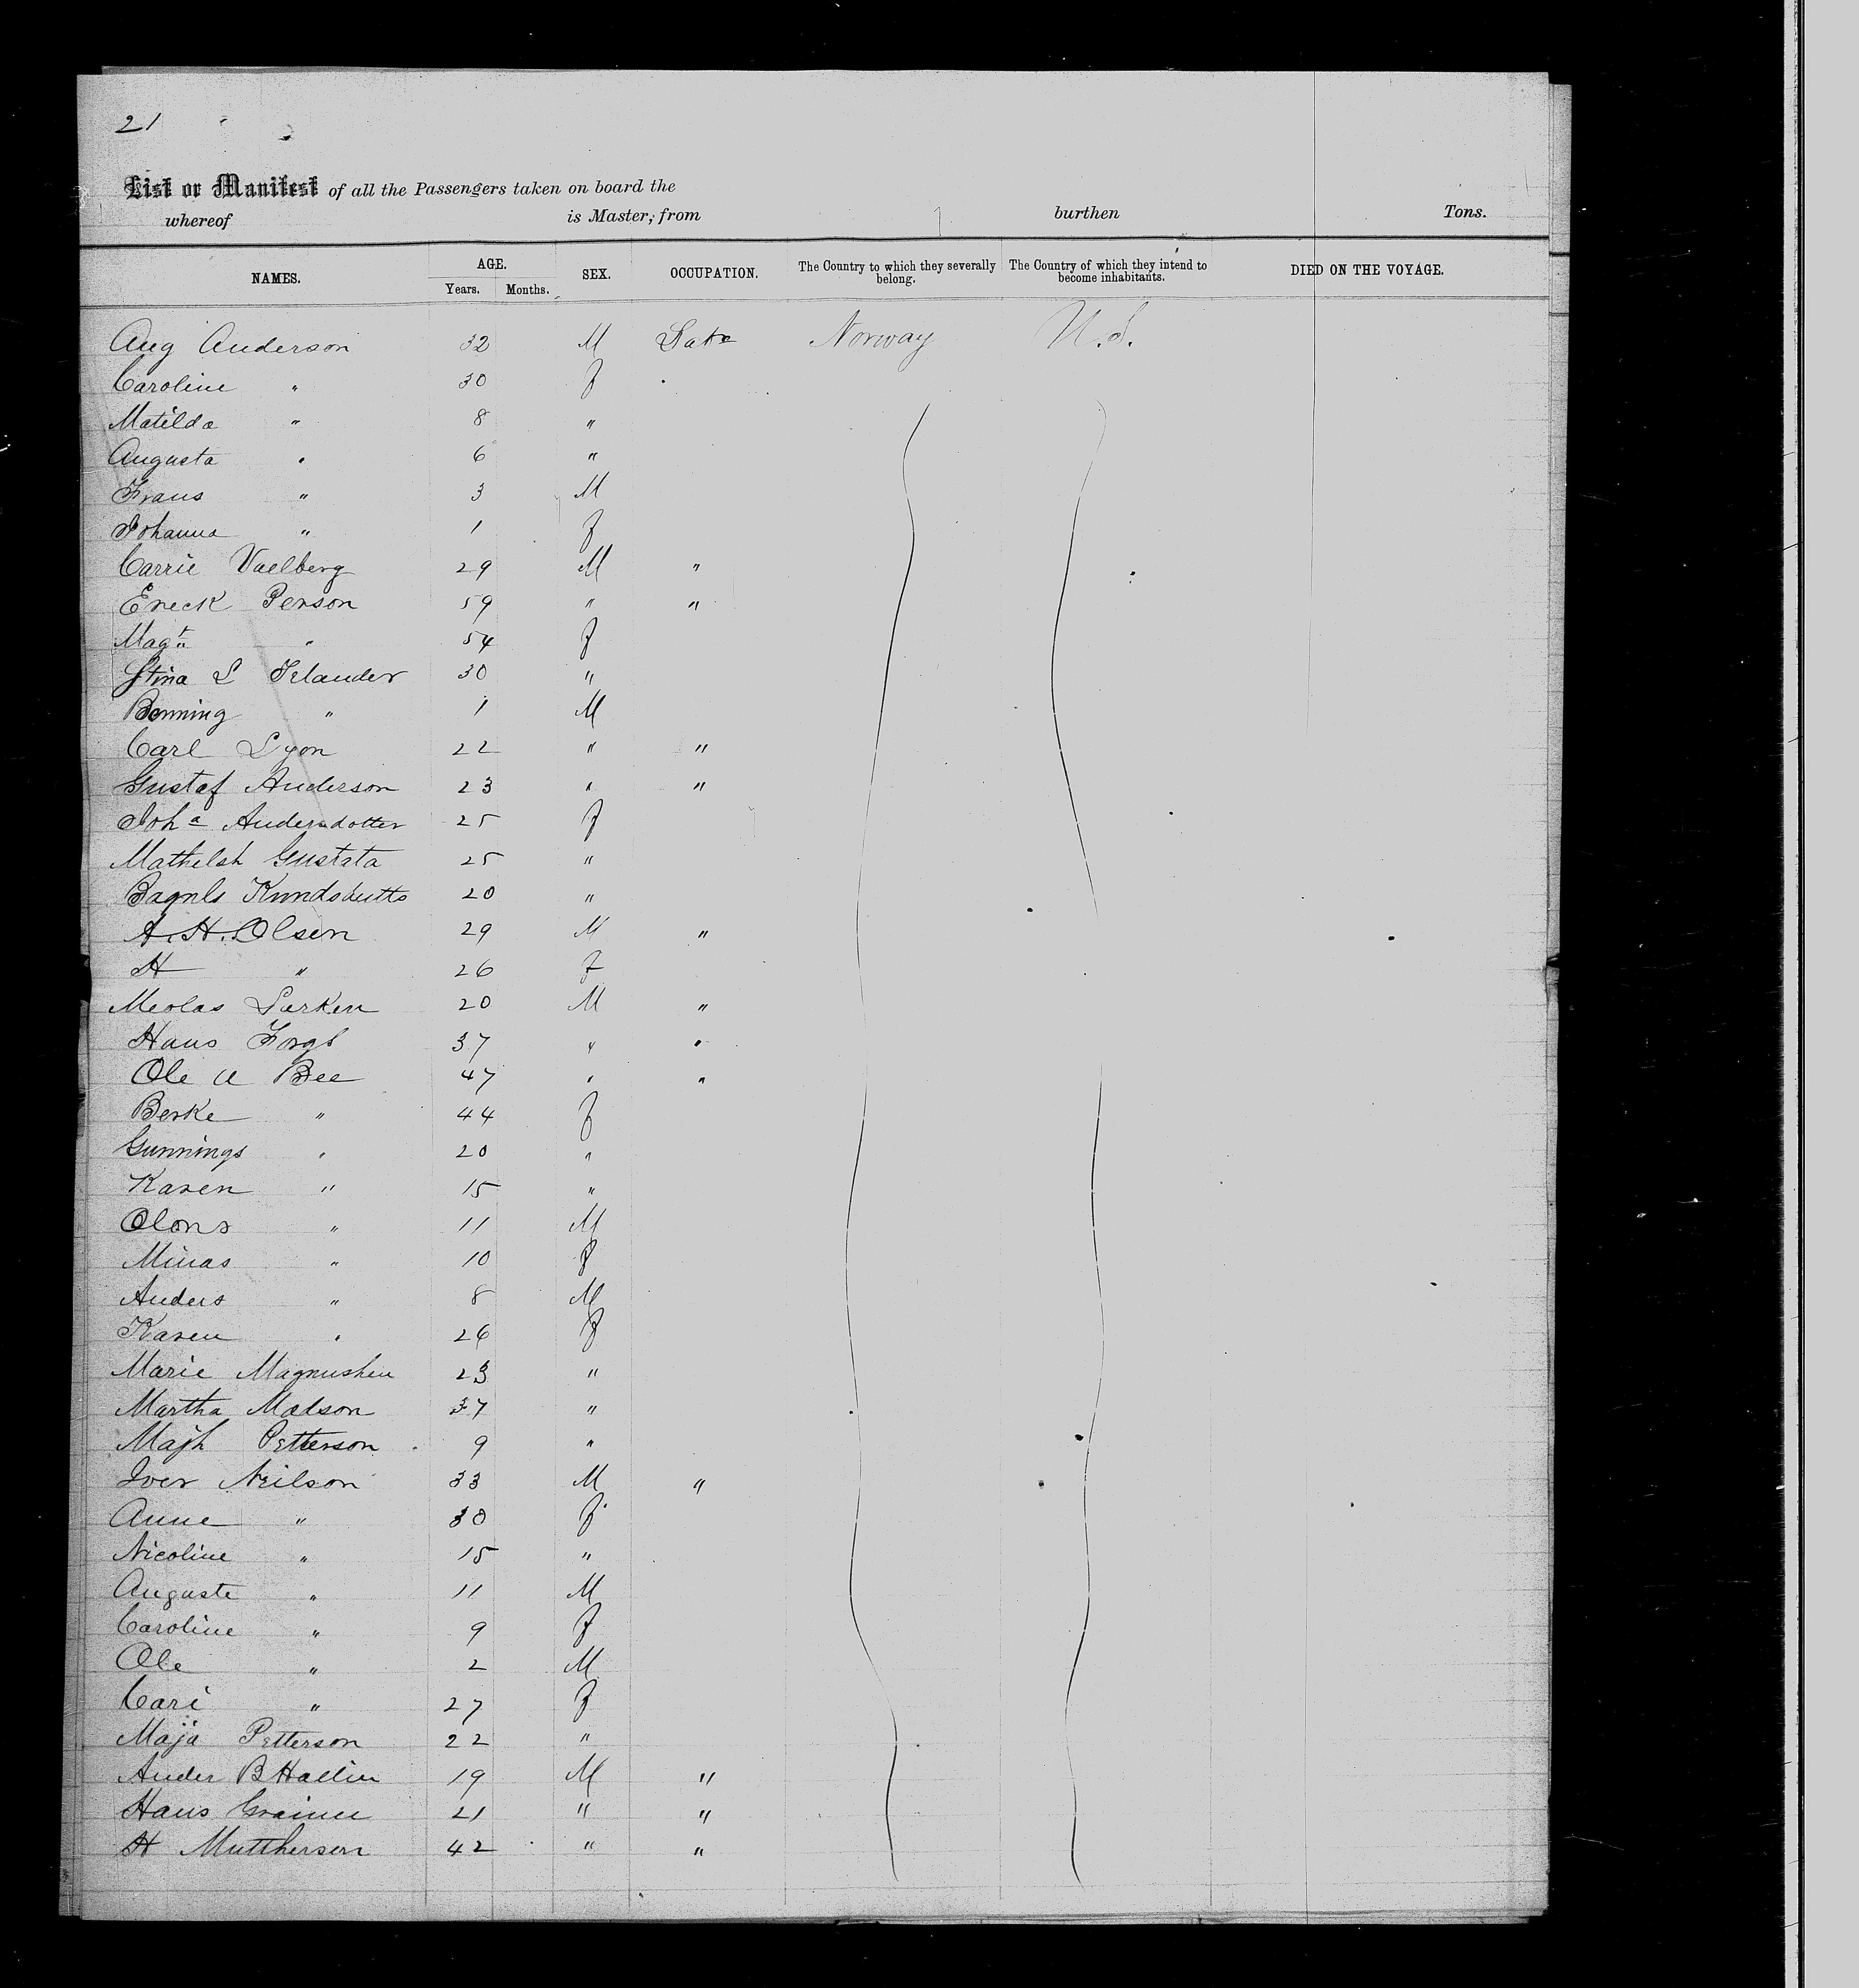 21
List or Manifest of all the Passengers taken on board the
whereof is Master, from burthen Tons.
NAMES. AGE. SEX. OCCUPATION. The Country to which they severally belong. The Country of which they intend to become inhabitants. DIED ON THE VOYAGE.
Years. Months.
Aug Anderson 32 M Norway U.S.
Caroline " 30 f
Matilda " 8 "
Augusta " 6 "
Frans " 3 M
Johanna " 1 f
Carrie Vaelberg 29 M "
Ereck Person 59 " "
Magt " 54 f
Stina L Irlander 30 "
Benning " 1 M
Carl Lyon 22 " "
Gustaf Anderson 23 " "
Joha Andersdotter 25 f
Mathelsh Gustata 25 "
20 "
A. H. Olsen 29 M "
H " 26 f
Larken 20 M "
Hans 37 " "
Ole A Bee 47 " "
Berke " 44 f
Gunnings " 20 "
Karen " 15 "
Olons " 11 M
Minas " 10 f
Anders " 8 M
Karen " 26 f
Marie Magnushen 23 "
Martha Madson 37 "
Majh Petterson 9 "
Iver Neilson 33 M "
Anne " 30 f
Nicoline " 15 "
Auguste " 11 M
Caroline " 9 f
Ole " 2 M
Cari " 27 f
Maja Petterson 22 "
Ander B Hallin 19 M "
Hans 21 " "
H Muttherson 42 " "